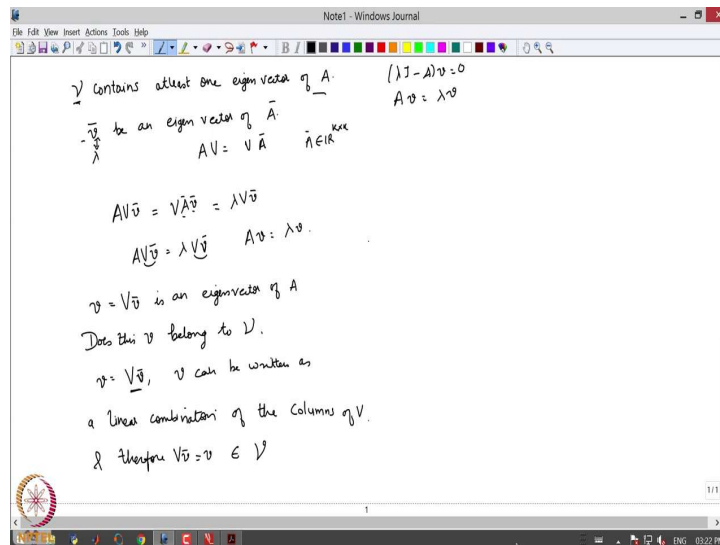 Note1 - Windows Journal
File Edit View Insert Actions Tools Help
𝒱 contains atleast one eigen vector of A.
(λI - A)v = 0
Av = λv
- v̄ be an eigen vector of Ā.
↕
λ
AV = VĀ
Ā ∈ ℝᵏˣᵏ
AVv̄ = VĀv̄ = λVv̄
AVv̄ = λVv̄
Av = λv.
v = Vv̄ is an eigenvector of A
Does this v belong to 𝒱.
v = Vv̄, v can be written as
a linear combination of the columns of V.
& therefore Vv̄ = v ∈ 𝒱
1/1
1
NPTEL
ENG 03:22 PM